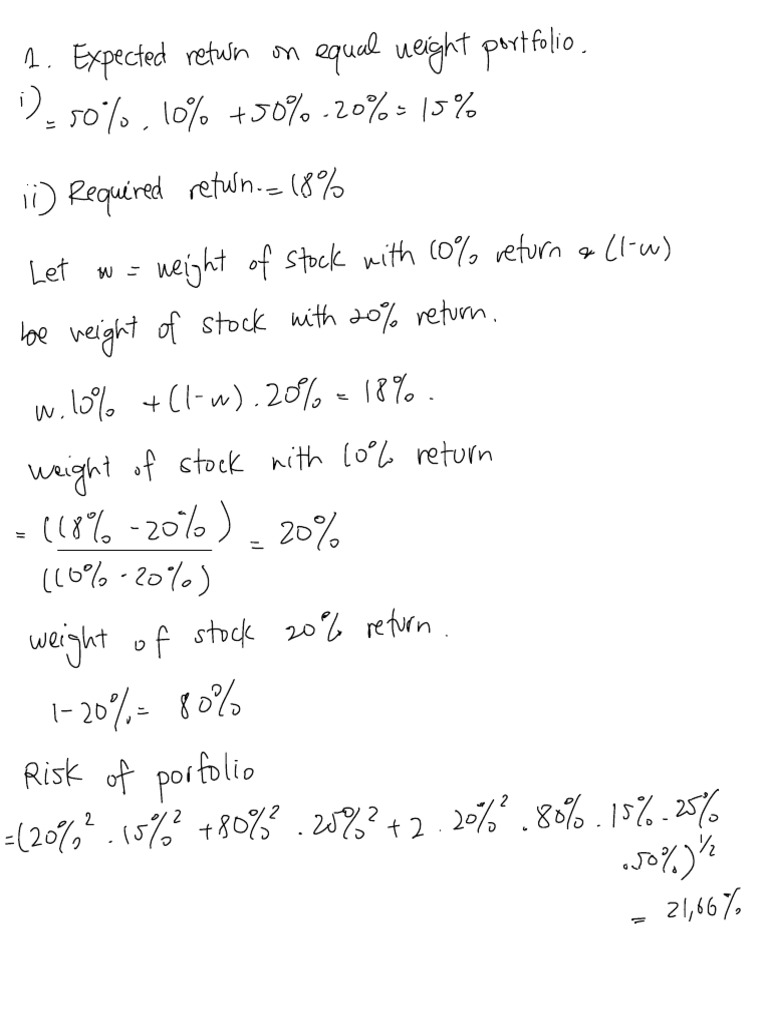 1. Expected return on equal weight portfolio.
i) = 50%. 10% + 50% . 20% = 15%
ii) Required return. = 18%
Let w = weight of stock with 10% return & (1-w)
be weight of stock with 20% return.
w. 10% + (1-w) . 20% = 18% .
weight of stock with 10% return
= (18% - 20%) = 20%
(10% - 20%)
weight of stock 20% return.
1 - 20% = 80%
Risk of porfolio
= (20%² . 15%² + 80%² . 25%² + 2 . 20%² . 80% . 15% . 25%
. 50%)^1/2
= 21,66%